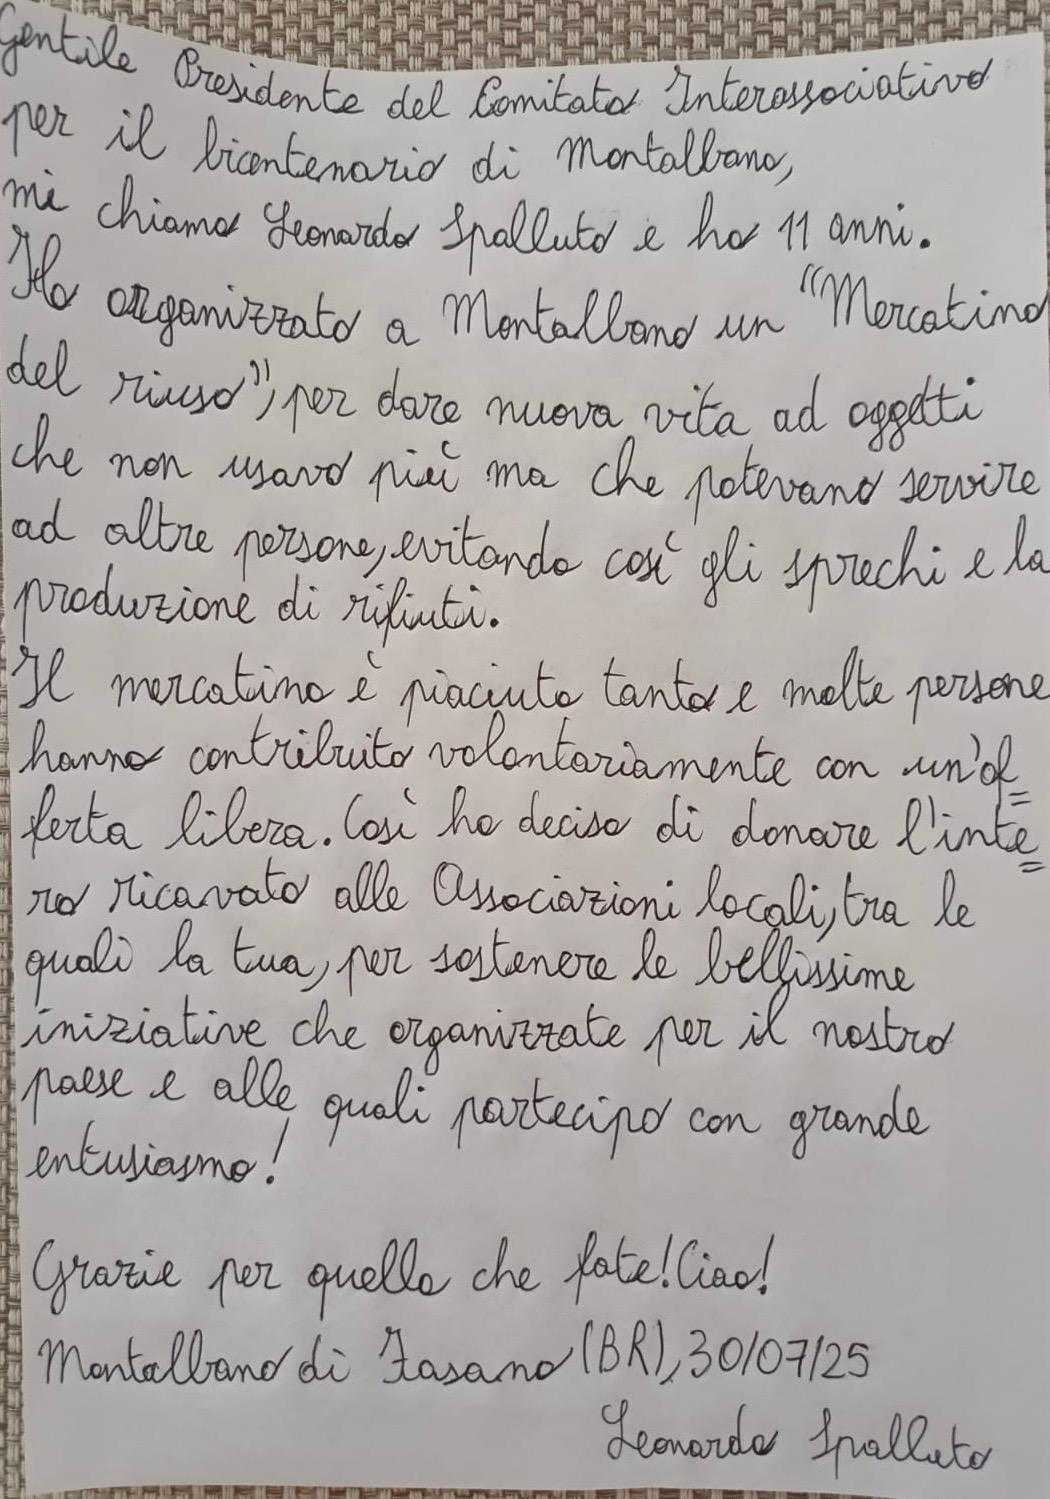 Gentile Presidente del Comitato Interassociativo
per il bicentenario di Montalbano,
mi chiamo Leonardo Spalluto e ho 11 anni.
Ho organizzato a Montalbano un "Mercatino
del riuso", per dare nuova vita ad oggetti
che non usavo più ma che potevano servire
ad altre persone, evitando così gli sprechi e la
produzione di rifiuti.
Il mercatino è piaciuto tanto e molte persone
hanno contribuito volontariamente con un'of=
ferta libera. Così ho deciso di donare l'inte=
ro ricavato alle Associazioni locali, tra le
quali la tua, per sostenere le bellissime
iniziative che organizzate per il nostro
paese e alle quali partecipo con grande
entusiasmo!
Grazie per quello che fate! Ciao!
Montalbano di Fasano (BR), 30/07/25
Leonardo Spalluto